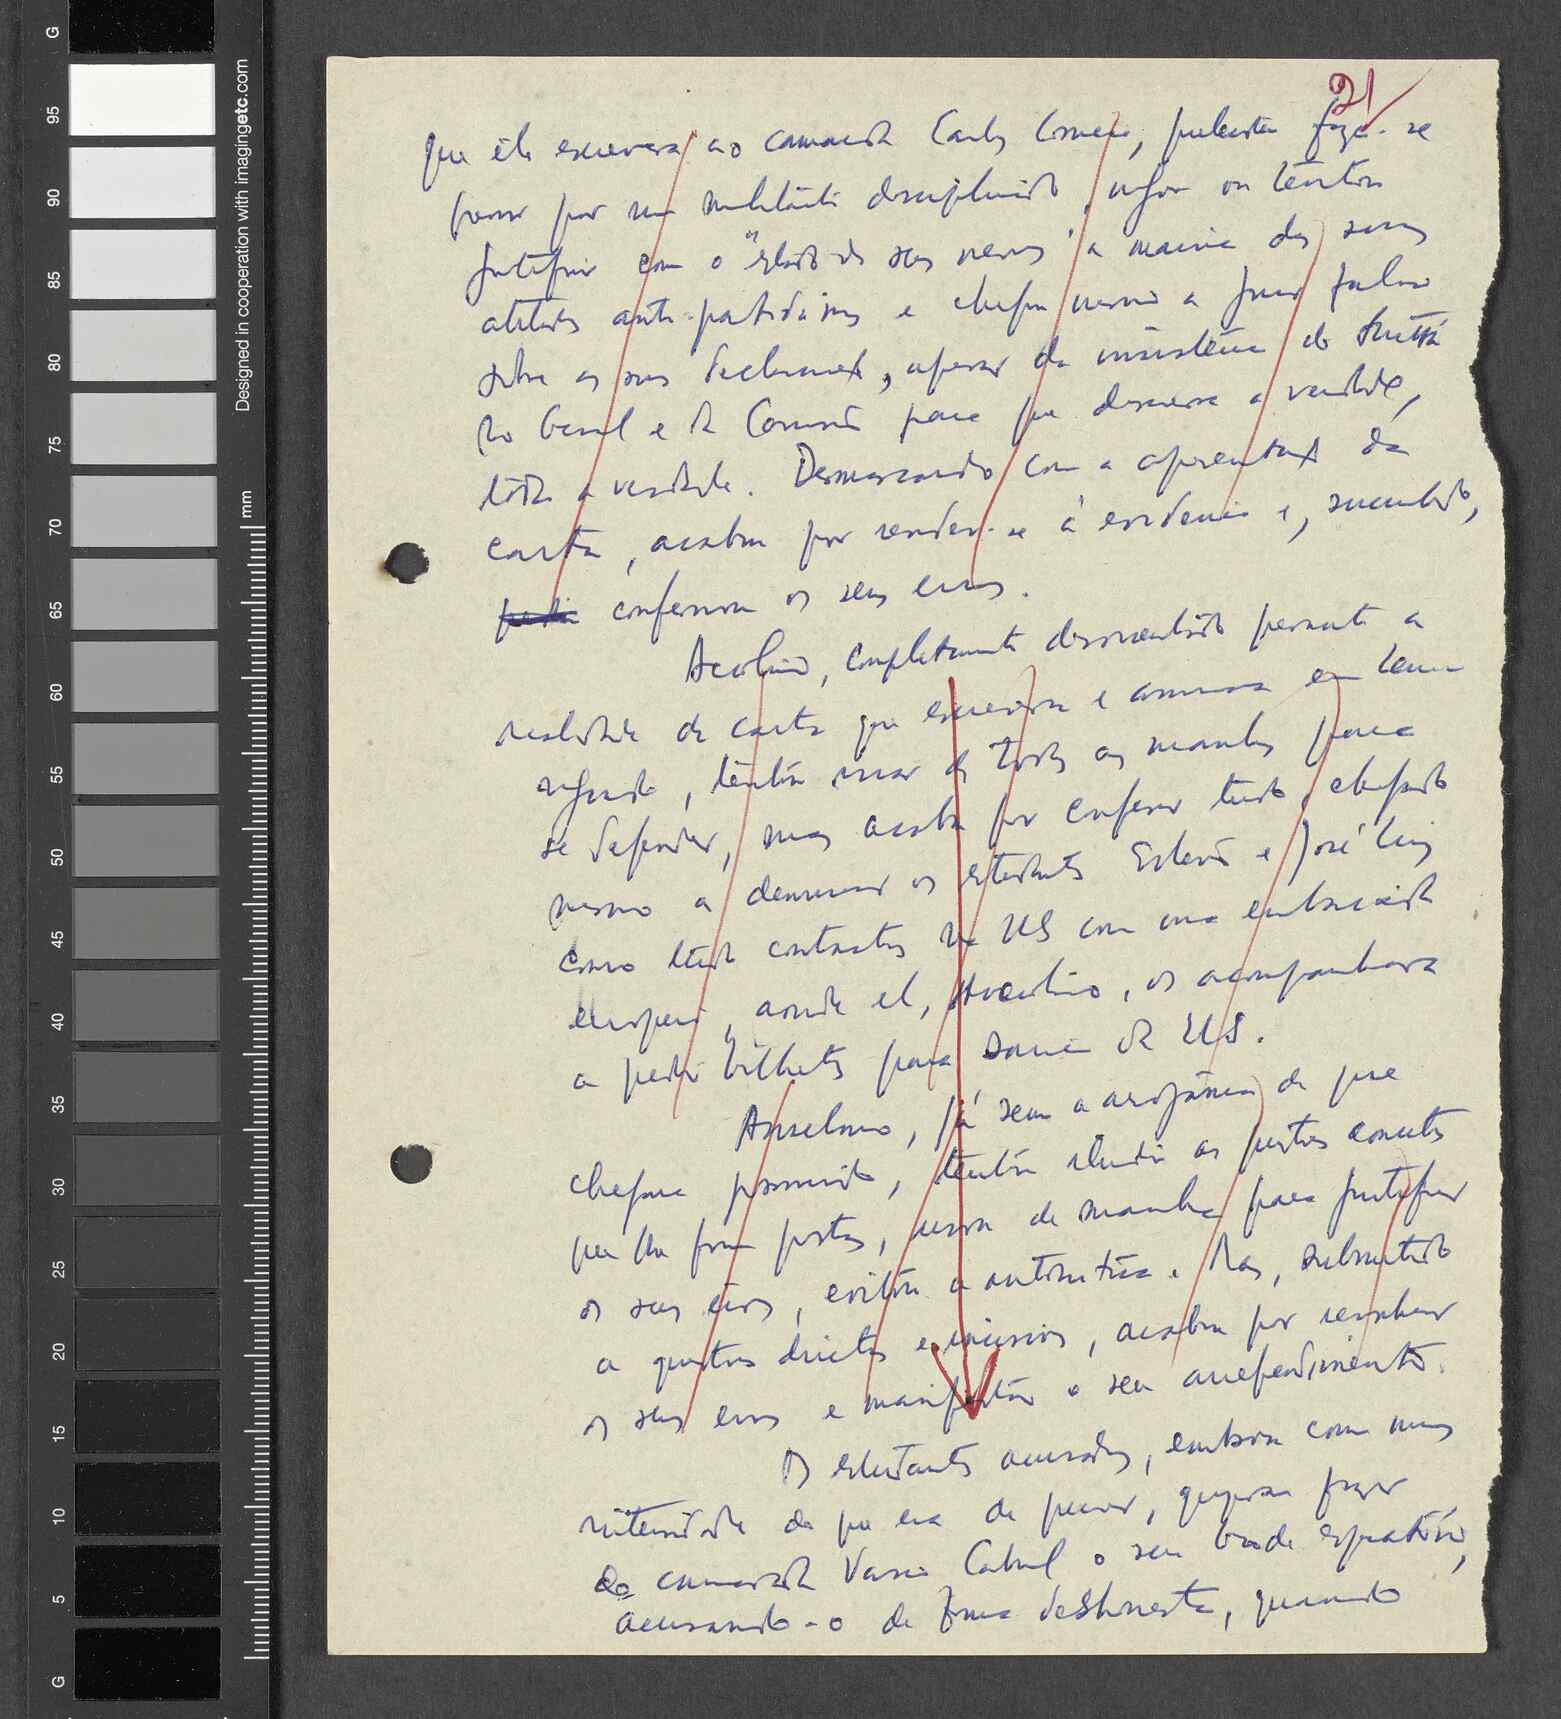 21
que êle escrevera ao camarada Carlos Correia, pretendeu fazer-se
passar por um militante disciplinado, negou ou tentou
justificar com o "estado de seus nervos" a maioria das suas
atitudes anti-partidárias e chegou mesmo a jurar falso
sobre as suas declarações, apesar da insistência do Secretá
rio Geral e da Comissão para que dissesse a verdade,
tôda a verdade. Desmascarado com a apresentação da
carta, acabou por render-se à evidência e, sucumbido,
confessou os seus erros.
Avelino, completamente desorientado perante a
realidade da carta que escrevera e assinara em lugar
segundo, tentou usar de todas as manhas para
se defender, mas acabou por confessar tudo, chegando
mesmo a denunciar os estudantes Estevão e José Luis
como tendo contactos na US com uma embaixada
europeia, aonde el, Avelino, os acompanhara
a pedir bilhetes para sair da US.
Anselmo, já sem a arrogância de que
chegara possuido, tentou iludir as questões concretas
que lhe foram postas, usou de manha para justificar
os seus erros, evitou a autocrítica. Mas, submetido
a questões directas e incisivas, acabou por reconhecer
os seus erros e manifestou o seu arrependimento.
Os estudantes acusados, embora com menos
intensidade do que era de prever, quiseram fazer
do camarada Vasco Cabral o seu bode expiatório,
acusando-o de forma deshonesta, quando